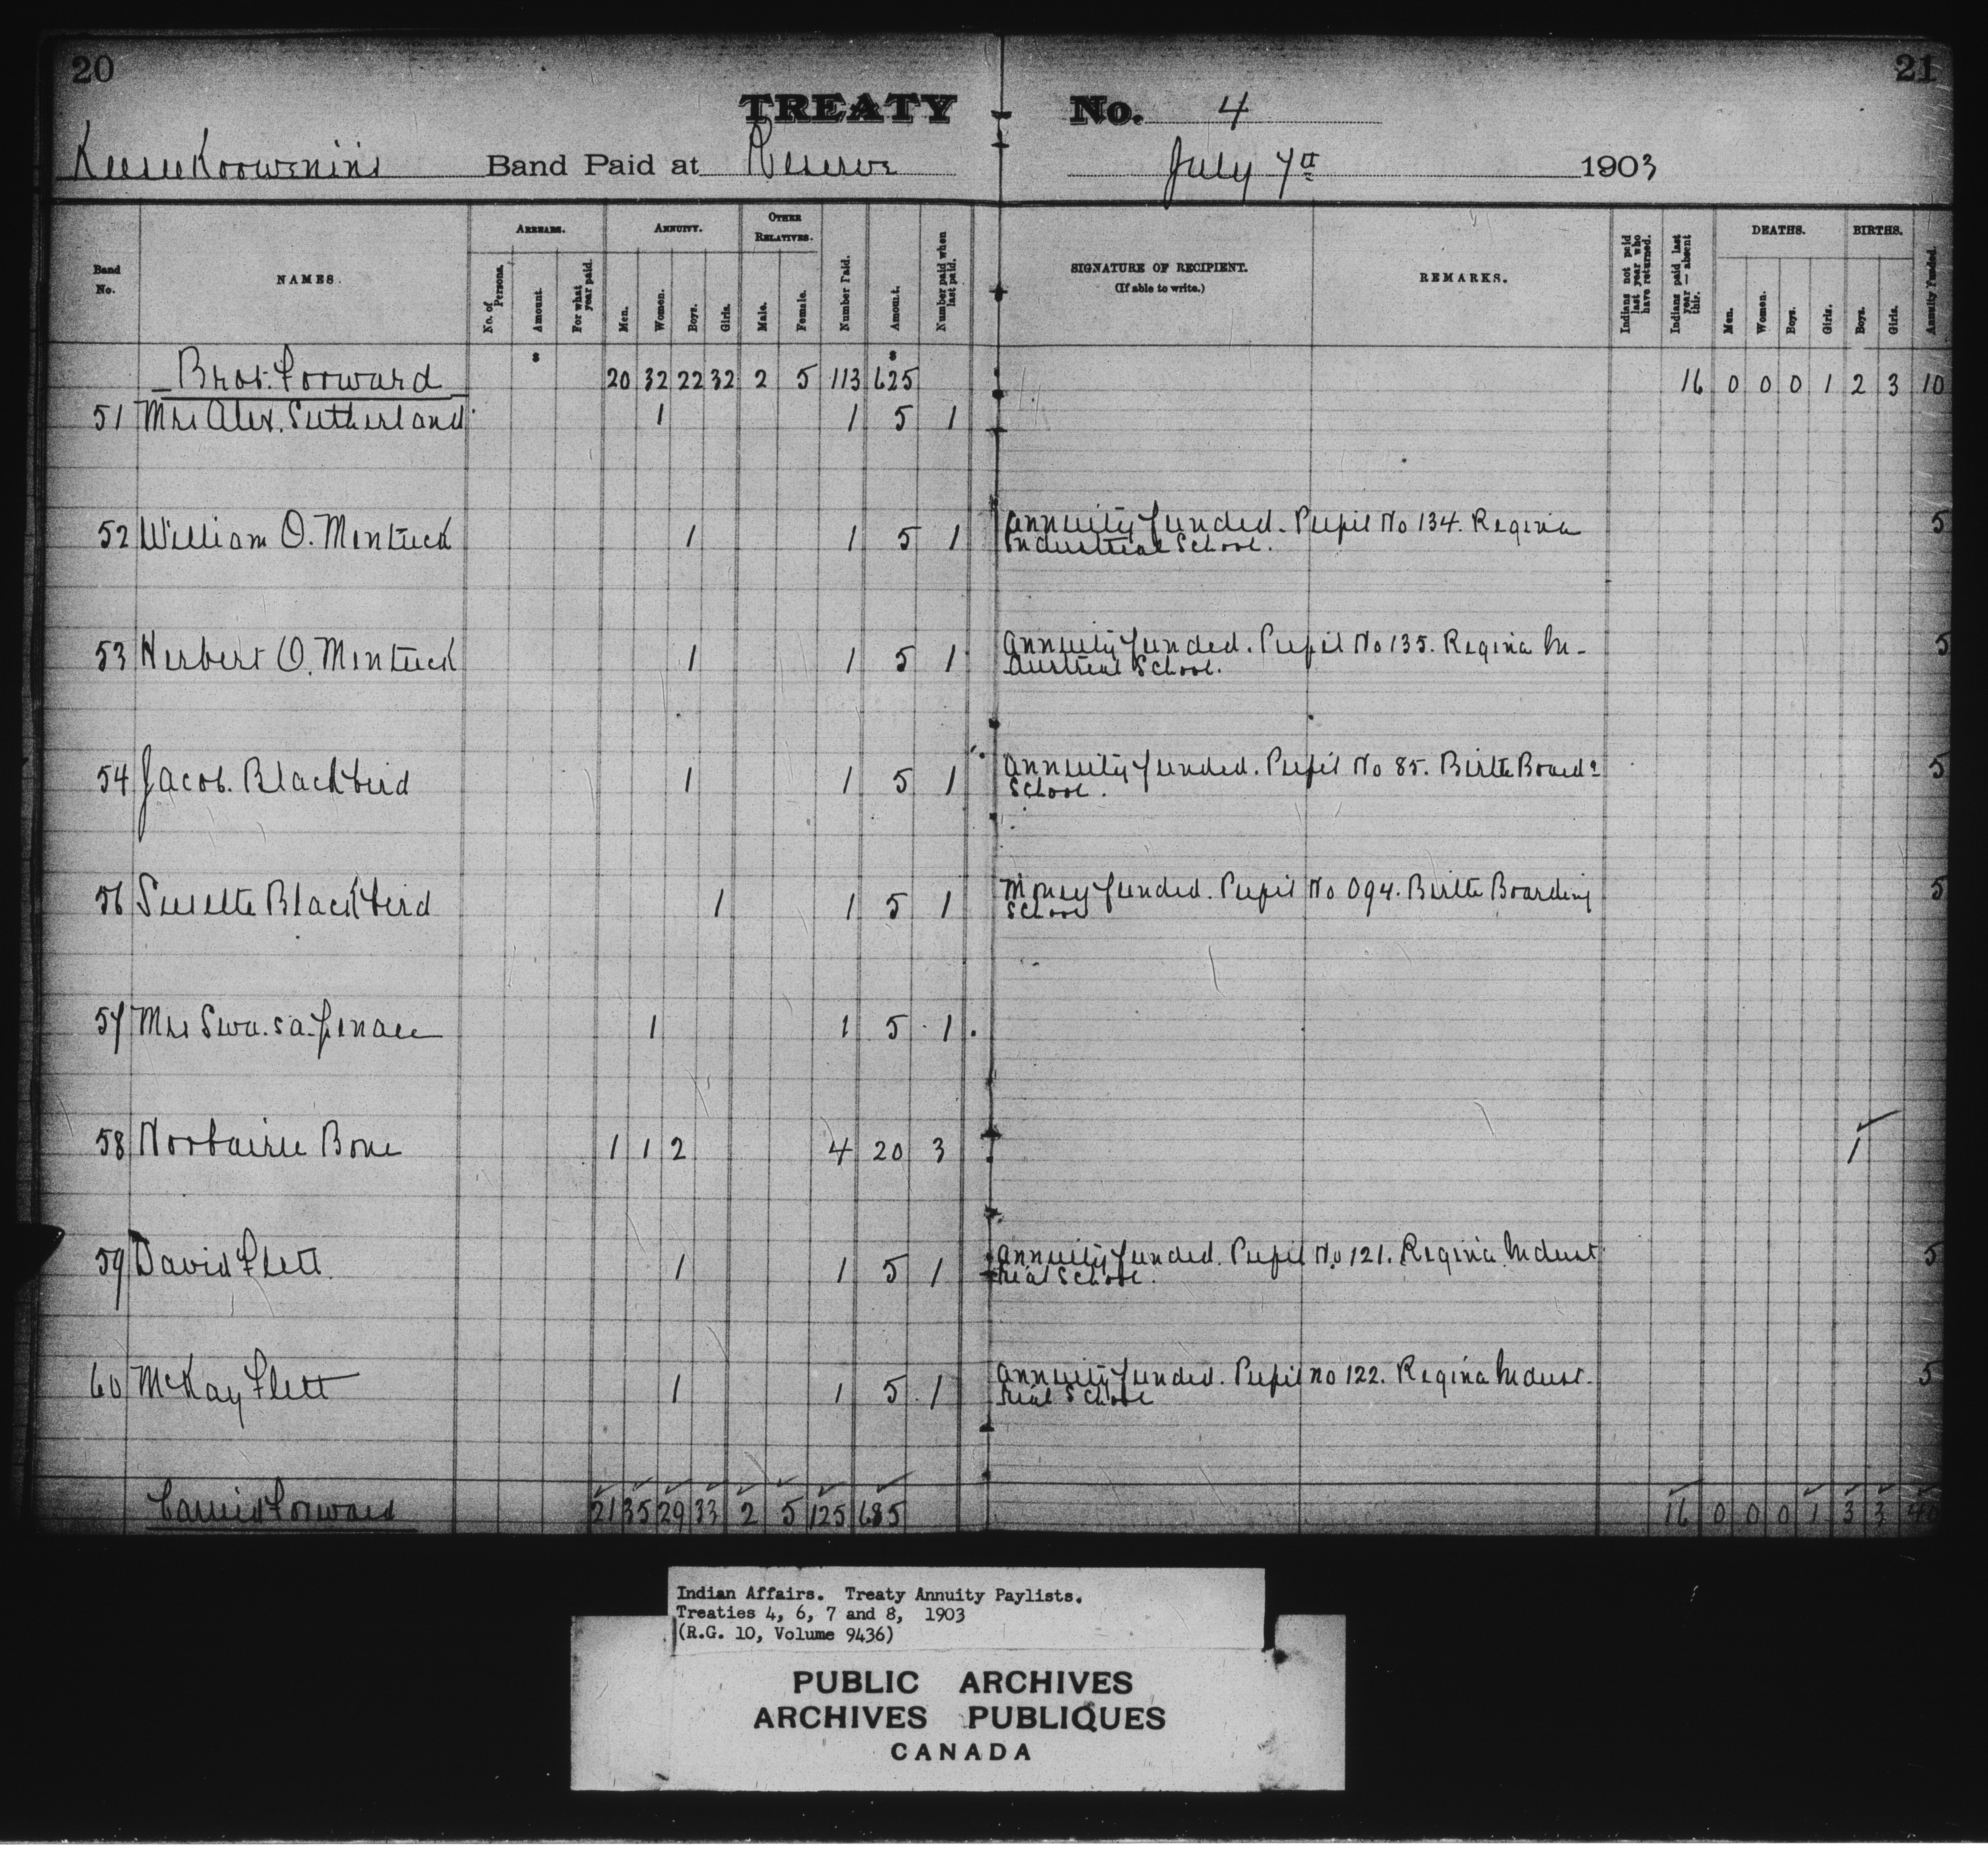 20
21
TREATY No. 4
Keeseekoowenin's Band Paid at Reserve July 7th 1903
Band No.
NAMES.
ARREARS.
No. of Persons.
Amount.
For what year paid.
ANNUITY.
Men.
Women.
Boys.
Girls.
OTHER RELATIVES.
Male.
Female.
Number Paid.
Amount.
Number paid when last paid.
SIGNATURE OF RECIPIENT.
(If able to write.)
REMARKS.
Indians not paid last year who have returned.
Indians paid last year — absent this.
DEATHS.
Men.
Women.
Boys.
Girls.
BIRTHS.
Boys.
Girls.
Annuity Funded.
$ $
Brot. Forward 20 32 22 32 2 5 113 625 16 0 0 0 1 2 3 10
51 Mrs Alex. Sutherland 1 1 5 1
52 William O. Mentuck 1 1 5 1 Annuity funded. Pupil No 134. Regina 5
Industrial School.
53 Herbert O. Mentuck 1 1 5 1 Annuity funded. Pupil No 135. Regina In- 5
dustrial School.
54 Jacob. Blackbird 1 1 5 1 Annuity funded. Pupil No 85. Birtle Boardg 5
School.
56 Susette Blackbird 1 1 5 1 Money funded. Pupil No 094. Birtle Boarding 5
School
57 Mrs 1 1 5 1
58 Bone 1 1 2 4 20 3 1
59 David Flett. 1 1 5 1 Annuity funded. Pupil No 121. Regina Indust 5
rial School.
60 McKay Flett 1 1 5 1 Annuity funded. Pupil no 122. Regina Indust. 5
rial School
Carried Forward 21 35 29 33 2 5 125 685 16 0 0 0 1 3 3 40
Indian Affairs. Treaty Annuity Paylists.
Treaties 4, 6, 7 and 8, 1903
(R.G. 10, Volume 9436)
PUBLIC ARCHIVES
ARCHIVES PUBLIQUES
CANADA